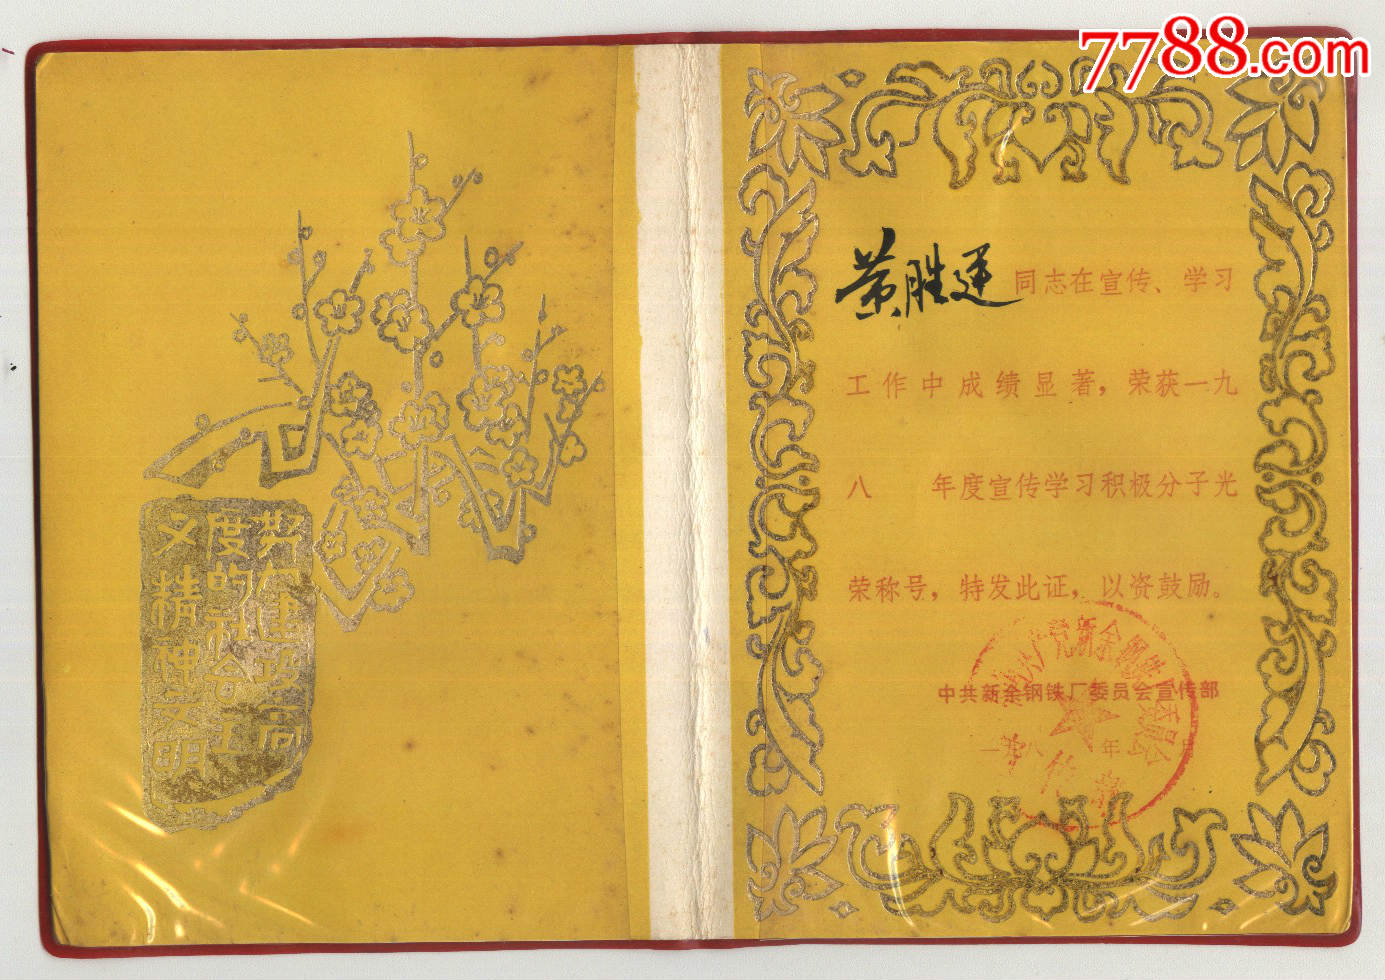 7788.com
努力建设高
度的社会主
义精神文明
黄胜莲同志在宣传、学习
工作中成绩显著，荣获一九
八　　年度宣传学习积极分子光
荣称号，特发此证，以资鼓励。
中共新余钢铁厂委员会宣传部
一九八　年
新余钢铁厂委员会
宣传部